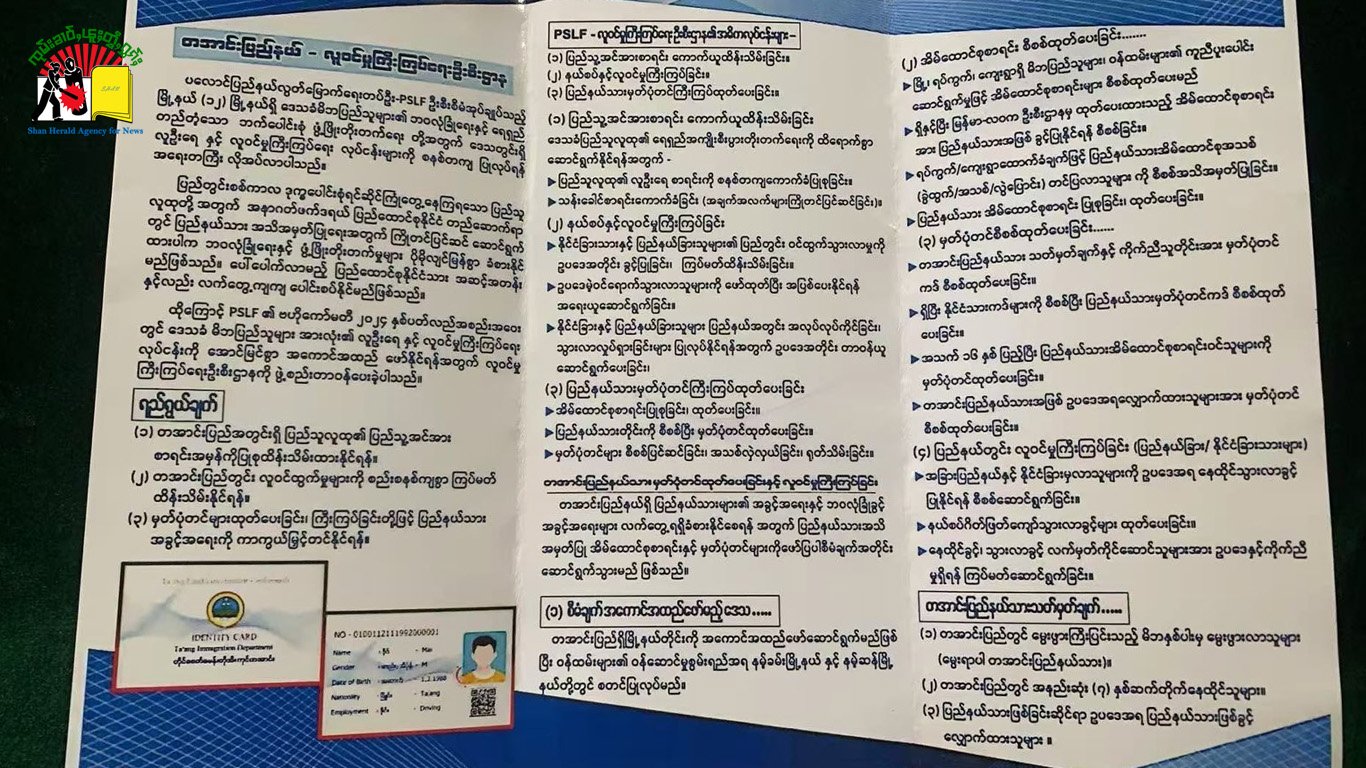 Shan Herald Agency for News
SHAN
တအာင်းပြည်နယ် – လူဝင်မှုကြီးကြပ်ရေးဦးစီးဌာန
ပလောင်ပြည်နယ်လွတ်မြောက်ရေးတပ်ဦး-PSLF ဦးစီးစီမံအုပ်ချုပ်သည့်
မြို့နယ် (၁၂) မြို့နယ်ရှိ ဒေသခံမိဘပြည်သူများ၏ ဘဝလုံခြုံရေးနှင့် ရေရှည်
တည်တံ့သော ဘက်ပေါင်းစုံ ဖွံ့ဖြိုးတိုးတက်ရေး တို့အတွက် ဒေသတွင်းရှိ
လူဦးရေ နှင့် လူဝင်မှုကြီးကြပ်ရေး လုပ်ငန်းများကို စနစ်တကျ ပြုလုပ်ရန်
အရေးတကြီး လိုအပ်လာပါသည်။
ပြည်တွင်းစစ်ကာလ ဒုက္ခပေါင်းစုံရင်ဆိုင်ကြုံတွေ့နေကြရသော ပြည်သူ
လူထုတို့အတွက် အနာဂတ်ဖက်ဒရယ် ပြည်ထောင်စုနိုင်ငံ တည်ဆောက်ရာ
တွင် ပြည်နယ်သား အသိအမှတ်ပြုရေးအတွက် ကြိုတင်ပြင်ဆင် ဆောင်ရွက်
ထားပါက ဘဝလုံခြုံရေးနှင့် ဖွံ့ဖြိုးတိုးတက်မှုများ ပိုမိုလျင်မြန်စွာ ခံစားနိုင်
မည်ဖြစ်သည်။ ပေါ်ပေါက်လာမည့် ပြည်ထောင်စုနိုင်ငံသား အဆင့်အတန်း
နှင့်လည်း လက်တွေ့ကျကျ ပေါင်းစပ်နိုင်မည်ဖြစ်သည်။
ထို့ကြောင့် PSLF ၏ ဗဟိုကော်မတီ ၂၀၂၄ နှစ်ပတ်လည်အစည်းအဝေး
တွင် ဒေသခံ မိဘပြည်သူများ အားလုံး၏ လူဦးရေ နှင့် လူဝင်မှုကြီးကြပ်ရေး
လုပ်ငန်းကို အောင်မြင်စွာ အကောင်အထည် ဖော်နိုင်ရန်အတွက် လူဝင်မှု
ကြီးကြပ်ရေးဦးစီးဌာနကို ဖွဲ့စည်းတာဝန်ပေးခဲ့ပါသည်။
ရည်ရွယ်ချက်
(၁) တအာင်းပြည်အတွင်းရှိ ပြည်သူလူထု၏ ပြည်သူ့အင်အား
စာရင်းအမှန်ကိုပြုစုထိန်းသိမ်းထားနိုင်ရန်။
(၂) တအာင်းပြည်တွင်း လူဝင်ထွက်မှုများကို စည်းစနစ်ကျစွာ ကြပ်မတ်
ထိန်းသိမ်းနိုင်ရန်။
(၃) မှတ်ပုံတင်များထုတ်ပေးခြင်း၊ ကြီးကြပ်ခြင်းတို့ဖြင့် ပြည်နယ်သား
အခွင့်အရေးကို ကာကွယ်မြှင့်တင်နိုင်ရန်။
IDENTITY CARD
Ta'ang Immigration Department
NO - 0100112111992000001
Name
Mai
Gender
M
Date of Birth
1.2.1988
Nationality
Ta'ang
Employment
Driving
PSLF - လူဝင်မှုကြီးကြပ်ရေးဦးစီးဌာန၏အဓိကလုပ်ငန်းများ–
(၁) ပြည်သူ့အင်အားစာရင်း ကောက်ယူထိန်းသိမ်းခြင်း။
(၂) နယ်စပ်နှင့်လူဝင်မှုကြီးကြပ်ခြင်း။
(၃) ပြည်နယ်သားမှတ်ပုံတင်ကြီးကြပ်ထုတ်ပေးခြင်း။
(၁) ပြည်သူ့အင်အားစာရင်း ကောက်ယူထိန်းသိမ်းခြင်း
ဒေသခံပြည်သူလူထု၏ ရေရှည်အကျိုးစီးပွားတိုးတက်ရေးကို ထိရောက်စွာ
ဆောင်ရွက်နိုင်ရန်အတွက် -
▶ ပြည်သူလူထု၏ လူဦးရေ စာရင်းကို စနစ်တကျကောက်ခံပြုစုခြင်း။
▶ သန်းခေါင်စာရင်းကောက်ခံခြင်း (အချက်အလက်များကြိုတင်ပြင်ဆင်ခြင်း)။
(၂) နယ်စပ်နှင့်လူဝင်မှုကြီးကြပ်ခြင်း
▶ နိုင်ငံခြားသားနှင့် ပြည်နယ်ခြားသူများ၏ ပြည်တွင်း ဝင်ထွက်သွားလာမှုကို
ဥပဒေအတိုင်း ခွင့်ပြုခြင်း၊ ကြပ်မတ်ထိန်းသိမ်းခြင်း။
▶ ဥပဒေမဲ့ဝင်ရောက်သွားလာသူများကို ဖော်ထုတ်ပြီး အပြစ်ပေးနိုင်ရန်
အရေးယူဆောင်ရွက်ခြင်း။
▶ နိုင်ငံခြားနှင့် ပြည်နယ်ခြားသူများ ပြည်နယ်အတွင်း အလုပ်လုပ်ကိုင်ခြင်း၊
သွားလာလှုပ်ရှားခြင်းများ ပြုလုပ်နိုင်ရန်အတွက် ဥပဒေအတိုင်း တာဝန်ယူ
ဆောင်ရွက်ပေးခြင်း၊
(၃) ပြည်နယ်သားမှတ်ပုံတင်ကြီးကြပ်ထုတ်ပေးခြင်း
▶ အိမ်ထောင်စုစာရင်းပြုစုခြင်း၊ ထုတ်ပေးခြင်း။
▶ ပြည်နယ်သားတိုင်းကို စီစစ်ပြီး မှတ်ပုံတင်ထုတ်ပေးခြင်း။
▶ မှတ်ပုံတင်များ စီစစ်ပြင်ဆင်ခြင်း၊ အသစ်လဲလှယ်ခြင်း၊ ရုတ်သိမ်းခြင်း။
တအာင်းပြည်နယ်သား မှတ်ပုံတင်ထုတ်ပေးခြင်းနှင့် လူဝင်မှုကြီးကြပ်ခြင်း
တအာင်းပြည်နယ်ရှိ ပြည်နယ်သားများ၏ အခွင့်အရေးနှင့် ဘဝလုံခြုံခွင့်
အခွင့်အရေးများ လက်တွေ့ရရှိခံစားနိုင်စေရန် အတွက် ပြည်နယ်သားအသိ
အမှတ်ပြု အိမ်ထောင်စုစာရင်းနှင့် မှတ်ပုံတင်များကိုဖော်ပြပါစီမံချက်အတိုင်း
ဆောင်ရွက်သွားမည် ဖြစ်သည်။
(၁) စီမံချက်အကောင်အထည်ဖော်မည့်ဒေသ.....
တအာင်းပြည်ရှိမြို့နယ်တိုင်းကို အကောင်အထည်ဖော်ဆောင်ရွက်မည်ဖြစ်
ပြီး ဝန်ထမ်းများ၏ ဝန်ဆောင်မှုစွမ်းရည်အရ နမ့်ခမ်းမြို့နယ် နှင့် နမ့်ဆန်မြို့
နယ်တို့တွင် စတင်ပြုလုပ်မည်။
(၂) အိမ်ထောင်စုစာရင်း စီစစ်ထုတ်ပေးခြင်း.......
▶ မြို့၊ ရပ်ကွက်၊ ကျေးရွာရှိ မိဘပြည်သူများ၊ ဝန်ထမ်းများ၏ ကူညီပူးပေါင်း
ဆောင်ရွက်မှုဖြင့် အိမ်ထောင်စုစာရင်းများ စီစစ်ထုတ်ပေးမည်
▶ ရှိနှင့်ပြီး မြန်မာ-လဝက ဦးစီးဌာနမှ ထုတ်ပေးထားသည့် အိမ်ထောင်စုစာရင်း
အား ပြည်နယ်သားအဖြစ် ခွင့်ပြုနိုင်ရန် စီစစ်ခြင်း။
▶ ရပ်ကွက်/ကျေးရွာထောက်ခံချက်ဖြင့် ပြည်နယ်သားအိမ်ထောင်စုအသစ်
(ခွဲထွက်/အသစ်/လွှဲပြောင်း) တင်ပြလာသူများ ကို စီစစ်အသိအမှတ်ပြုခြင်း။
▶ ပြည်နယ်သား အိမ်ထောင်စုစာရင်း ပြုစုခြင်း၊ ထုတ်ပေးခြင်း။
(၃) မှတ်ပုံတင်စီစစ်ထုတ်ပေးခြင်း......
▶ တအာင်းပြည်နယ်သား သတ်မှတ်ချက်နှင့် ကိုက်ညီသူတိုင်းအား မှတ်ပုံတင်
ကဒ် စီစစ်ထုတ်ပေးခြင်း။
▶ ရှိပြီး နိုင်ငံသားကဒ်များကို စီစစ်ပြီး ပြည်နယ်သားမှတ်ပုံတင်ကဒ် စီစစ်ထုတ်
ပေးခြင်း။
▶ အသက် ၁၆ နှစ် ပြည့်ပြီး ပြည်နယ်သားအိမ်ထောင်စုစာရင်းဝင်သူများကို
မှတ်ပုံတင်ထုတ်ပေးခြင်း။
▶ တအာင်းပြည်နယ်သားအဖြစ် ဥပဒေအရလျှောက်ထားသူများအား မှတ်ပုံတင်
စီစစ်ထုတ်ပေးခြင်း။
(၄) ပြည်နယ်တွင်း လူဝင်မှုကြီးကြပ်ခြင်း (ပြည်နယ်ခြား/ နိုင်ငံခြားသားများ)
▶ အခြားပြည်နယ်နှင့် နိုင်ငံခြားမှလာသူများကို ဥပဒေအရ နေထိုင်သွားလာခွင့်
ပြုနိုင်ရန် စီစစ်ဆောင်ရွက်ခြင်း။
▶ နယ်စပ်ဂိတ်ဖြတ်ကျော်သွားလာခွင့်များ ထုတ်ပေးခြင်း။
▶ နေထိုင်ခွင့်၊ သွားလာခွင့် လက်မှတ်ကိုင်ဆောင်သူများအား ဥပဒေနှင့်ကိုက်ညီ
မှုရှိရန် ကြပ်မတ်ဆောင်ရွက်ခြင်း။
တအာင်းပြည်နယ်သားသတ်မှတ်ချက်.....
(၁) တအာင်းပြည်တွင် မွေးဖွားကြီးပြင်းသည့် မိဘနှစ်ပါးမှ မွေးဖွားလာသူများ
(မွေးရာပါ တအာင်းပြည်နယ်သား)။
(၂) တအာင်းပြည်တွင် အနည်းဆုံး (၇) နှစ်ဆက်တိုက်နေထိုင်သူများ။
(၃) ပြည်နယ်သားဖြစ်ခြင်းဆိုင်ရာ ဥပဒေအရ ပြည်နယ်သားဖြစ်ခွင့်
လျှောက်ထားသူများ ။